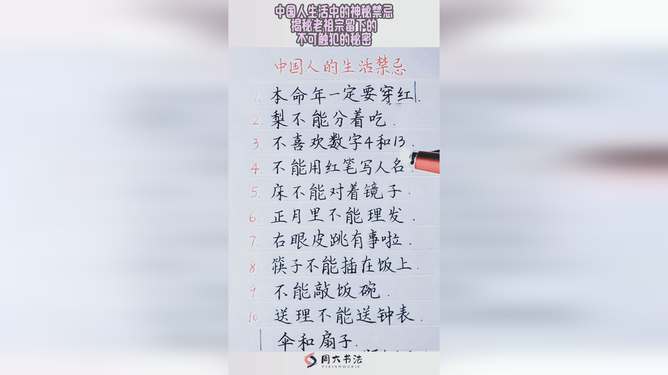 中国人生活中的神秘禁忌
揭秘老祖宗留下的
不可触犯的秘密
中国人的生活禁忌
1. 本命年一定要穿红.
2. 梨不能分着吃.
3. 不喜欢数字4和13.
4. 不能用红笔写人名.
5. 床不能对着镜子.
6. 正月里不能理发.
7. 右眼皮跳有事啦.
8. 筷子不能插在饭上.
9. 不能敲饭碗.
10. 送理不能送钟表.
伞和扇子.
周六书法